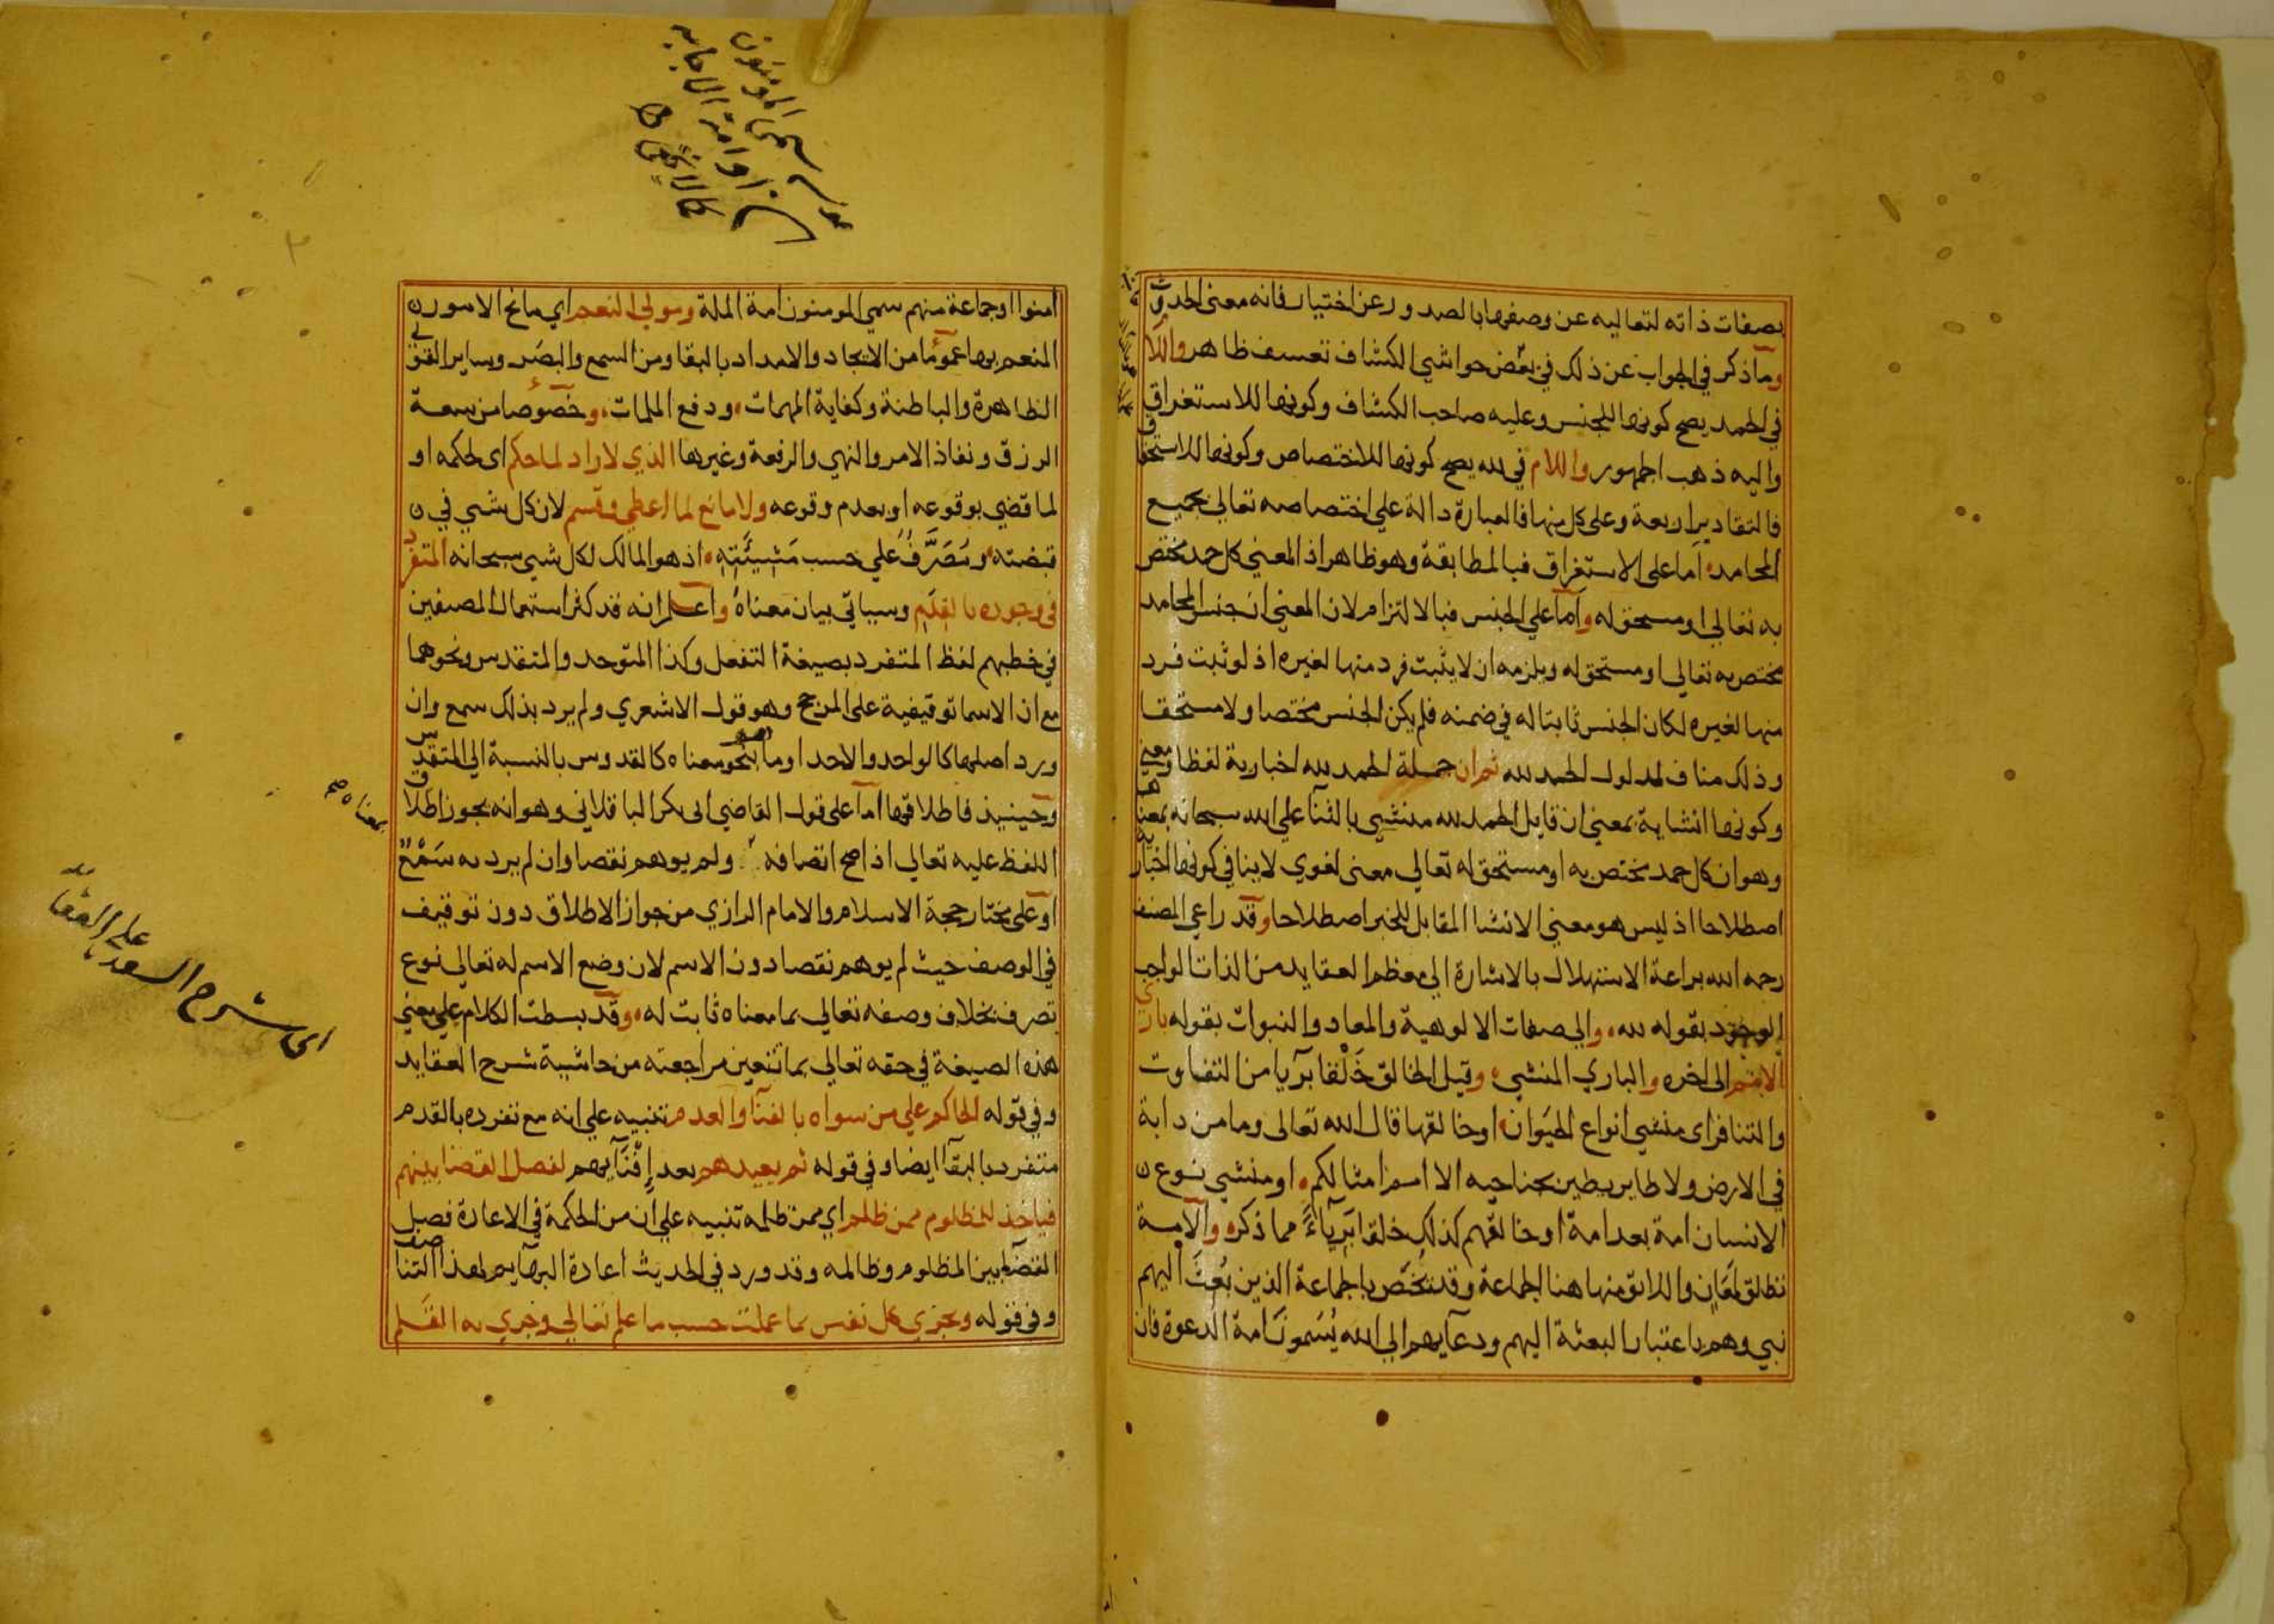 بصفات ذاته لتعاليه عن وصفها بالصدور عن اختيار فانه معنى الحدوث
وما ذكر في الجواب عن ذلك في بعض حواشي الكشاف تعسف ظاهر واللا
في الحمد يصح كونها للجنس وعليه صاحب الكشاف وكونها للاستغراق
واليه ذهب الجمهور واللام في لله يصح كونها للاختصاص وكونها للاستحقا
فالتقادير اربعة وعلى كل منها فالعبارة دالة علي اختصاصه تعالي بجميع
المحامد اما على الاستغراق فبالمطابقة وهو ظاهر اذ المعني كل حمد مختص
به تعالي او مستحق له واما علي الجنس فبالالتزام لان المعني ان جنس المحامد
مختص به تعالي او مستحق له ويلزمه ان لا يثبت فرد منها لغيره اذ لو ثبت فرد
منها لغيره لكان الجنس ثابتا له في ضمنه فلم يكن الجنس مختصا ولا مستحقا
وذلك مناف لمدلول الحمد لله ثم ان جملة الحمد لله اخبارية لفظا ومعني
وكونها انشاية بمعني ان قايل الحمد لله منشي بالثنآ علي الله سبحانه بمعنا
وهو ان كل حمد مختص به او مستحق له تعالي معنى لغوي لا ينافي كونها اخبار
اصطلاحا اذ ليس هو معني الانشا المقابل للخبر اصطلاحا وقد راعي المصنف
رحمه الله براعة الاستهلال بالاشارة الي معظم العقايد من الذات الواجب
الوجود بقوله لله والي صفات الالوهية والمعاد والنبوات بقوله باري
الامم الى اخره والباري المنشي وقيل الخالق خلقا بريا من التفاوت
والتنافر اى منشي انواع الحيوان او خالقها قال الله تعالى وما من دابة
في الارض ولا طاير يطير بجناحيه الا امم امثالكم او منشي نوع
الانسان امة بعد امة او خالقهم كذلك خلقا بريآء مما ذكر والامة
تطلق لمعان واللائق منها هنا الجماعة وقد تخص بالجماعة الذين بعث اليهم
نبي وهم باعتبار البعثة اليهم ودعآيهم الي الله يسمون امة الدعوة فان
امنوا او جماعة منهم سمي المومنون امة الملة ومولي النعم اي مانح الامور
المنعم بها عموما من الايجاد والامداد بالبقا ومن السمع والبصر وساير القوي
الظاهرة والباطنة وكفاية المهمات ودفع الملمات وخصوصا من سعة
الرزق ونفاذ الامر والنهي والرفعة وغيرها الذي لا راد لما حكم اى لحكمه او
لما قضي بوقوعه او بعدم وقوعه ولا مانع لما اعطي وقسم لان كل شي في
قبضته ومصرف علي حسب مشيئته اذ هو المالك لكل شي سبحانه المتفرد
في وجوده بالقدم وسياتي بيان معناه واعلم انه قد كثر استعمال المصنفين
في خطبهم لفظ المتفرد بصيغة التفعل وكذا المتوحد والمتقدس ونحوهما
مع ان الاسما توقيفية على المرجح وهو قول الاشعري ولم يرد بذلك سمع وان
ورد اصلها كالواحد والاحد او ما بمعناه كالقدوس بالنسبة الي المتقدس
وحينيذ فاطلاقها اما على قول القاضي ابي بكر الباقلاني وهو انه يجوز اطلا
اللفظ عليه تعالي اذا صح اتصافه ولم يوهم نقصا وان لم يرد به سمع
او على مختار حجة الاسلام والامام الرازي من جواز الاطلاق دون توقيف
في الوصف حيث لم يوهم نقصا دون الاسم لان وضع الاسم له تعالي نوع
تصرف بخلاف وصفه تعالي بما معناه ثابت له وقد بسطت الكلام علي معني
هذه الصيغة في حقه تعالي بما تتعين مراجعته من حاشية شرح العقايد
وفي قوله الحاكم علي من سواه بالفنآ والعدم تنبيه علي انه مع تفرده بالقدم
متفرد بالبقآ ايضا وفي قوله ثم يعيدهم بعد افنآيهم لفصل القضا بينهم
فياخذ للمظلوم ممن ظلم اي ممن ظلمه تنبيه علي ان من الحكمة في الاعادة فصل
القضآ بين المظلوم وظالمه وقد ورد في الحديث اعادة البهآيم لهذا التناصف
وفي قوله وتجزي كل نفس بما عملت حسب ما علم تعالي وجري به القلم
سمي المومنون
امة الاجابة
بمعناه صح
اى شرح السعد
على العقا